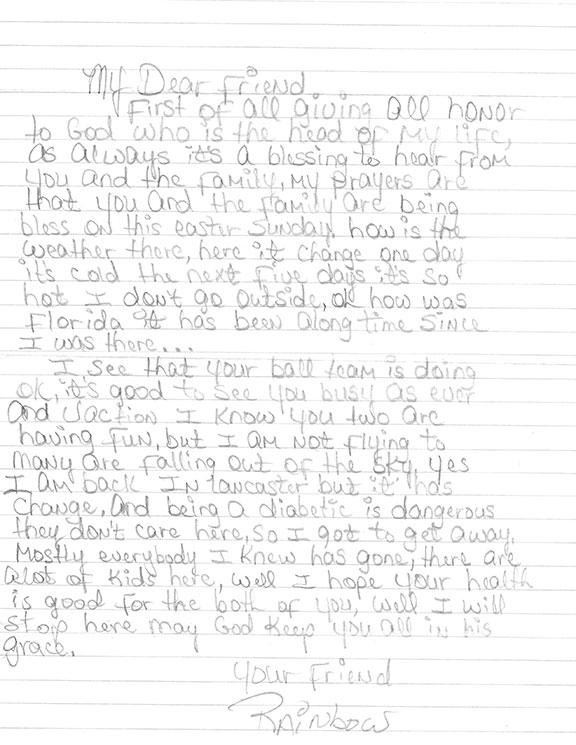 My Dear friend
First of all giving all honor
to God who is the head of my life,
as always it's a blessing to hear from
you and the family, my prayers are
that you and the family are being
bless on this easter Sunday. how is the
weather there, here it change one day
it's cold the next five days it's so
hot I don't go outside, ok how was
Florida it has been along time since
I was there...
I see that your ball team is doing
ok, it's good to see you busy as ever
and vaction I know you two are
having fun, but I am not flying to
many are falling out of the sky, yes
I am back In lancaster but it has
change, and being a diabetic is dangerous
they don't care here, so I got to get away.
Mostly everybody I knew has gone, there are
alot of kids here, well I hope your health
is good for the both of you, well I will
stop here may God keep you all in his
grace.
Your Friend
Rainbow